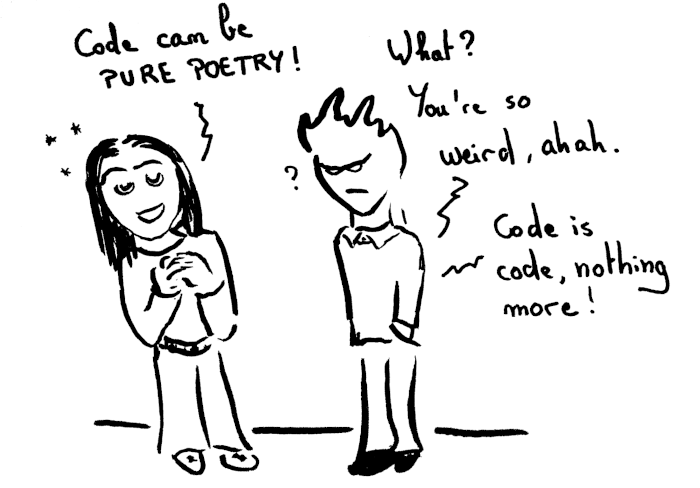 Code can be
PURE POETRY!
What?
You're so
weird, ahah.
?
Code is
code, nothing
more!